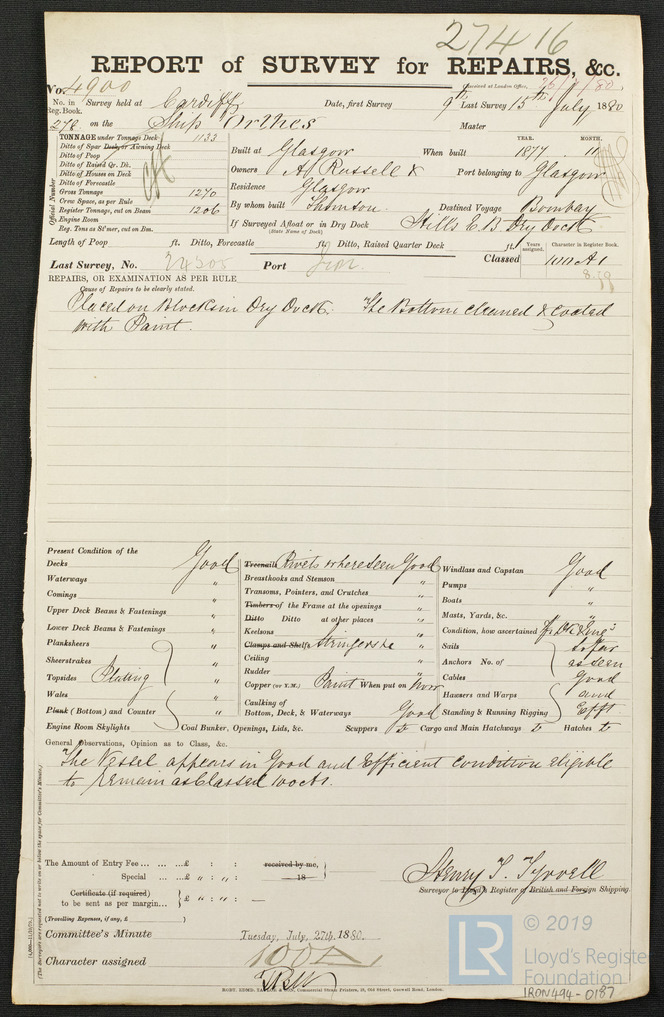 27416
REPORT of SURVEY for REPAIRS, &c.
No. 4900
Received at London Office, 26/7/80
No. in Reg. Book. Survey held at Cardiff Date, first Survey 9th Last Survey 15th July 1880
278 on the Ship Orthes Master
TONNAGE under Tonnage Deck 1133
Ditto of Spar Deck, or Awning Deck
Ditto of Poop
Ditto of Raised Qr. Dk.
Ditto of Houses on Deck
Ditto of Forecastle
Gross Tonnage 1270
Crew Space, as per Rule
Register Tonnage, cut on Beam 1206
Engine Room
Reg. Tons as St'mer, cut on Bm.
Official Number
YEAR. MONTH.
Built at Glasgow When built 1877 11
Owners A. Russell & Port belonging to Glasgow
Residence Glasgow
By whom built Thomson Destined Voyage Bombay
If Surveyed Afloat or in Dry Dock Hills E. B. Dry Dock
(State Name of Dock)
Length of Poop ft. Ditto, Forecastle ft. Ditto, Raised Quarter Deck ft.
Years assigned. Character in Register Book.
Last Survey, No. 24305 Port Classed 100 A1
8.79
REPAIRS, OR EXAMINATION AS PER RULE
Cause of Repairs to be clearly stated.
Placed on Blocks in Dry Dock. The Bottom cleaned & coated
with Paint.
Present Condition of the
Decks Good
Waterways "
Comings "
Upper Deck Beams & Fastenings "
Lower Deck Beams & Fastenings "
Planksheers "
Sheerstrakes "
Topsides Plating "
Wales "
Plank (Bottom) and Counter "
Engine Room Skylights
Treenails Rivets where seen Good
Breasthooks and Stemson "
Transoms, Pointers, and Crutches "
Timbers of the Frame at the openings "
Ditto Ditto at other places "
Keelsons "
Clamps and Shelfs Stringers &c "
Ceiling "
Rudder "
Copper (or Y.M.) Paint When put on Now
Caulking of
Bottom, Deck, & Waterways Good
Coal Bunker, Openings, Lids, &c. Scuppers Cargo and Main Hatchways Hatches
Windlass and Capstan Good
Pumps "
Boats "
Masts, Yards, &c. "
Condition, how ascertained
Sails so far
Anchors No. of as seen
Cables Good
Hawsers and Warps and
Standing & Running Rigging Efft
General Observations, Opinion as to Class, &c.
The Vessel appears in Good and Efficient condition eligible
to remain as Classed 100 A1.
The Amount of Entry Fee ... ... ... £ : : received by me,
Special ... ... £ " : " : 18
Certificate (if required)
to be sent as per margin... £ " : " :
(Travelling Expenses, if any, £ )
Henry T. Tyrrell
Surveyor to Lloyd's Register of British and Foreign Shipping.
Committee's Minute Tuesday, July, 27th. 1880.
Character assigned 100 A1
(The Surveyors are requested not to write on or below the space for Committee's Minute.)
© 2019
LR
Lloyd's Register
Foundation
IRON494-0187